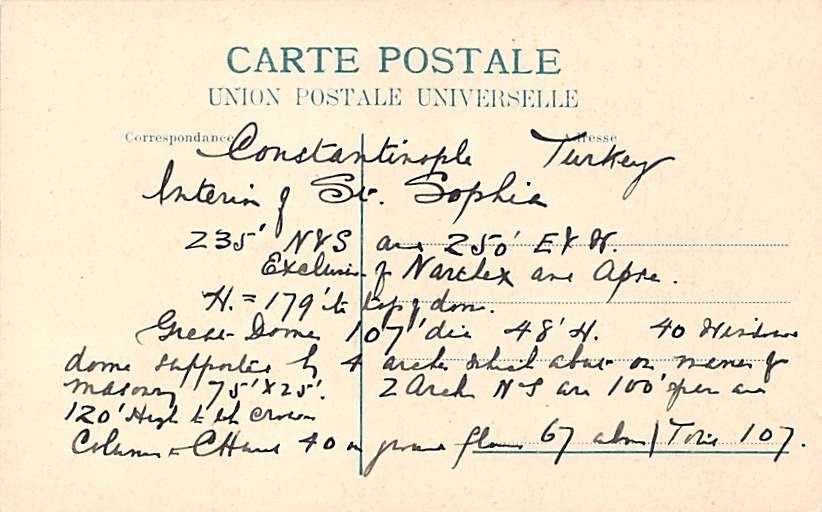 CARTE POSTALE
UNION POSTALE UNIVERSELLE
Correspondance Adresse
Constantinople Turkey
Interior of St. Sophia
235' N&S and 250' E&W.
Exclusive of Narthex and Apse.
H. = 179' to top of dome.
Great Dome 107' dia 48' H. 40 Windows
dome supported by 4 arches which abut on masses of
masonry 75' x 25'. 2 Arch N S are 100' open and
120' High to the crown
Columns 40 on ground floor 67 above / Total 107.